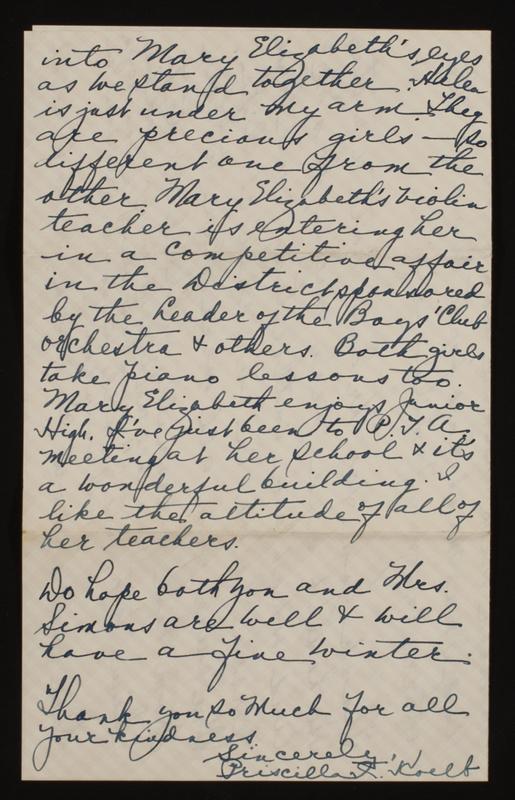 into Mary Elizabeth's eyes
as we stand together. Helen
is just under my arm. They
are precious girls — so
different one from the
other Mary Elizabeth's violin
teacher is entering her
in a competitive affair
in the District sponsored
by the leader of the Boys' Club
orchestra & others. Both girls
take piano lessons too.
Mary Elizabeth enjoys Junior
High. I've just been to P.T.A.
meeting at her school & it's
a wonderful building. I
like the attitude of all of
her teachers.
Do hope both you and Mrs.
Simons are well & will
have a fine winter.
Thank you so much for all
your kindness
Sincerely,
Priscilla